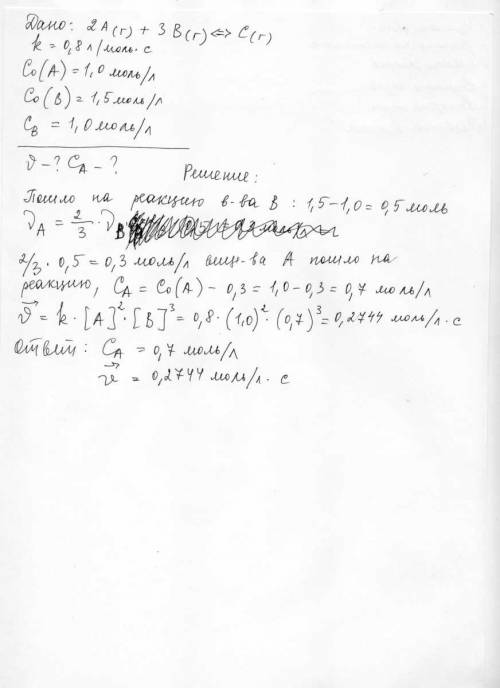 Дано: 2A(г) + 3B(г) <=> C(г)
k = 0,8 л/моль·с
C₀(A) = 1,0 моль/л
C₀(B) = 1,5 моль/л
C_B = 1,0 моль/л
ϑ - ? C_A - ?
Решение:
Пошло на реакцию в-ва B : 1,5-1,0 = 0,5 моль
ν_A = 2/3 · ν_B
2/3 · 0,5 = 0,3 моль/л вещ-ва A пошло на
реакцию, C_A = C₀(A) - 0,3 = 1,0-0,3 = 0,7 моль/л
ϑ⃗ = k · [A]² · [B]³ = 0,8 · (1,0)² · (0,7)³ = 0,2744 моль/л·с
Ответ: C_A = 0,7 моль/л
ϑ⃗ = 0,2744 моль/л·с